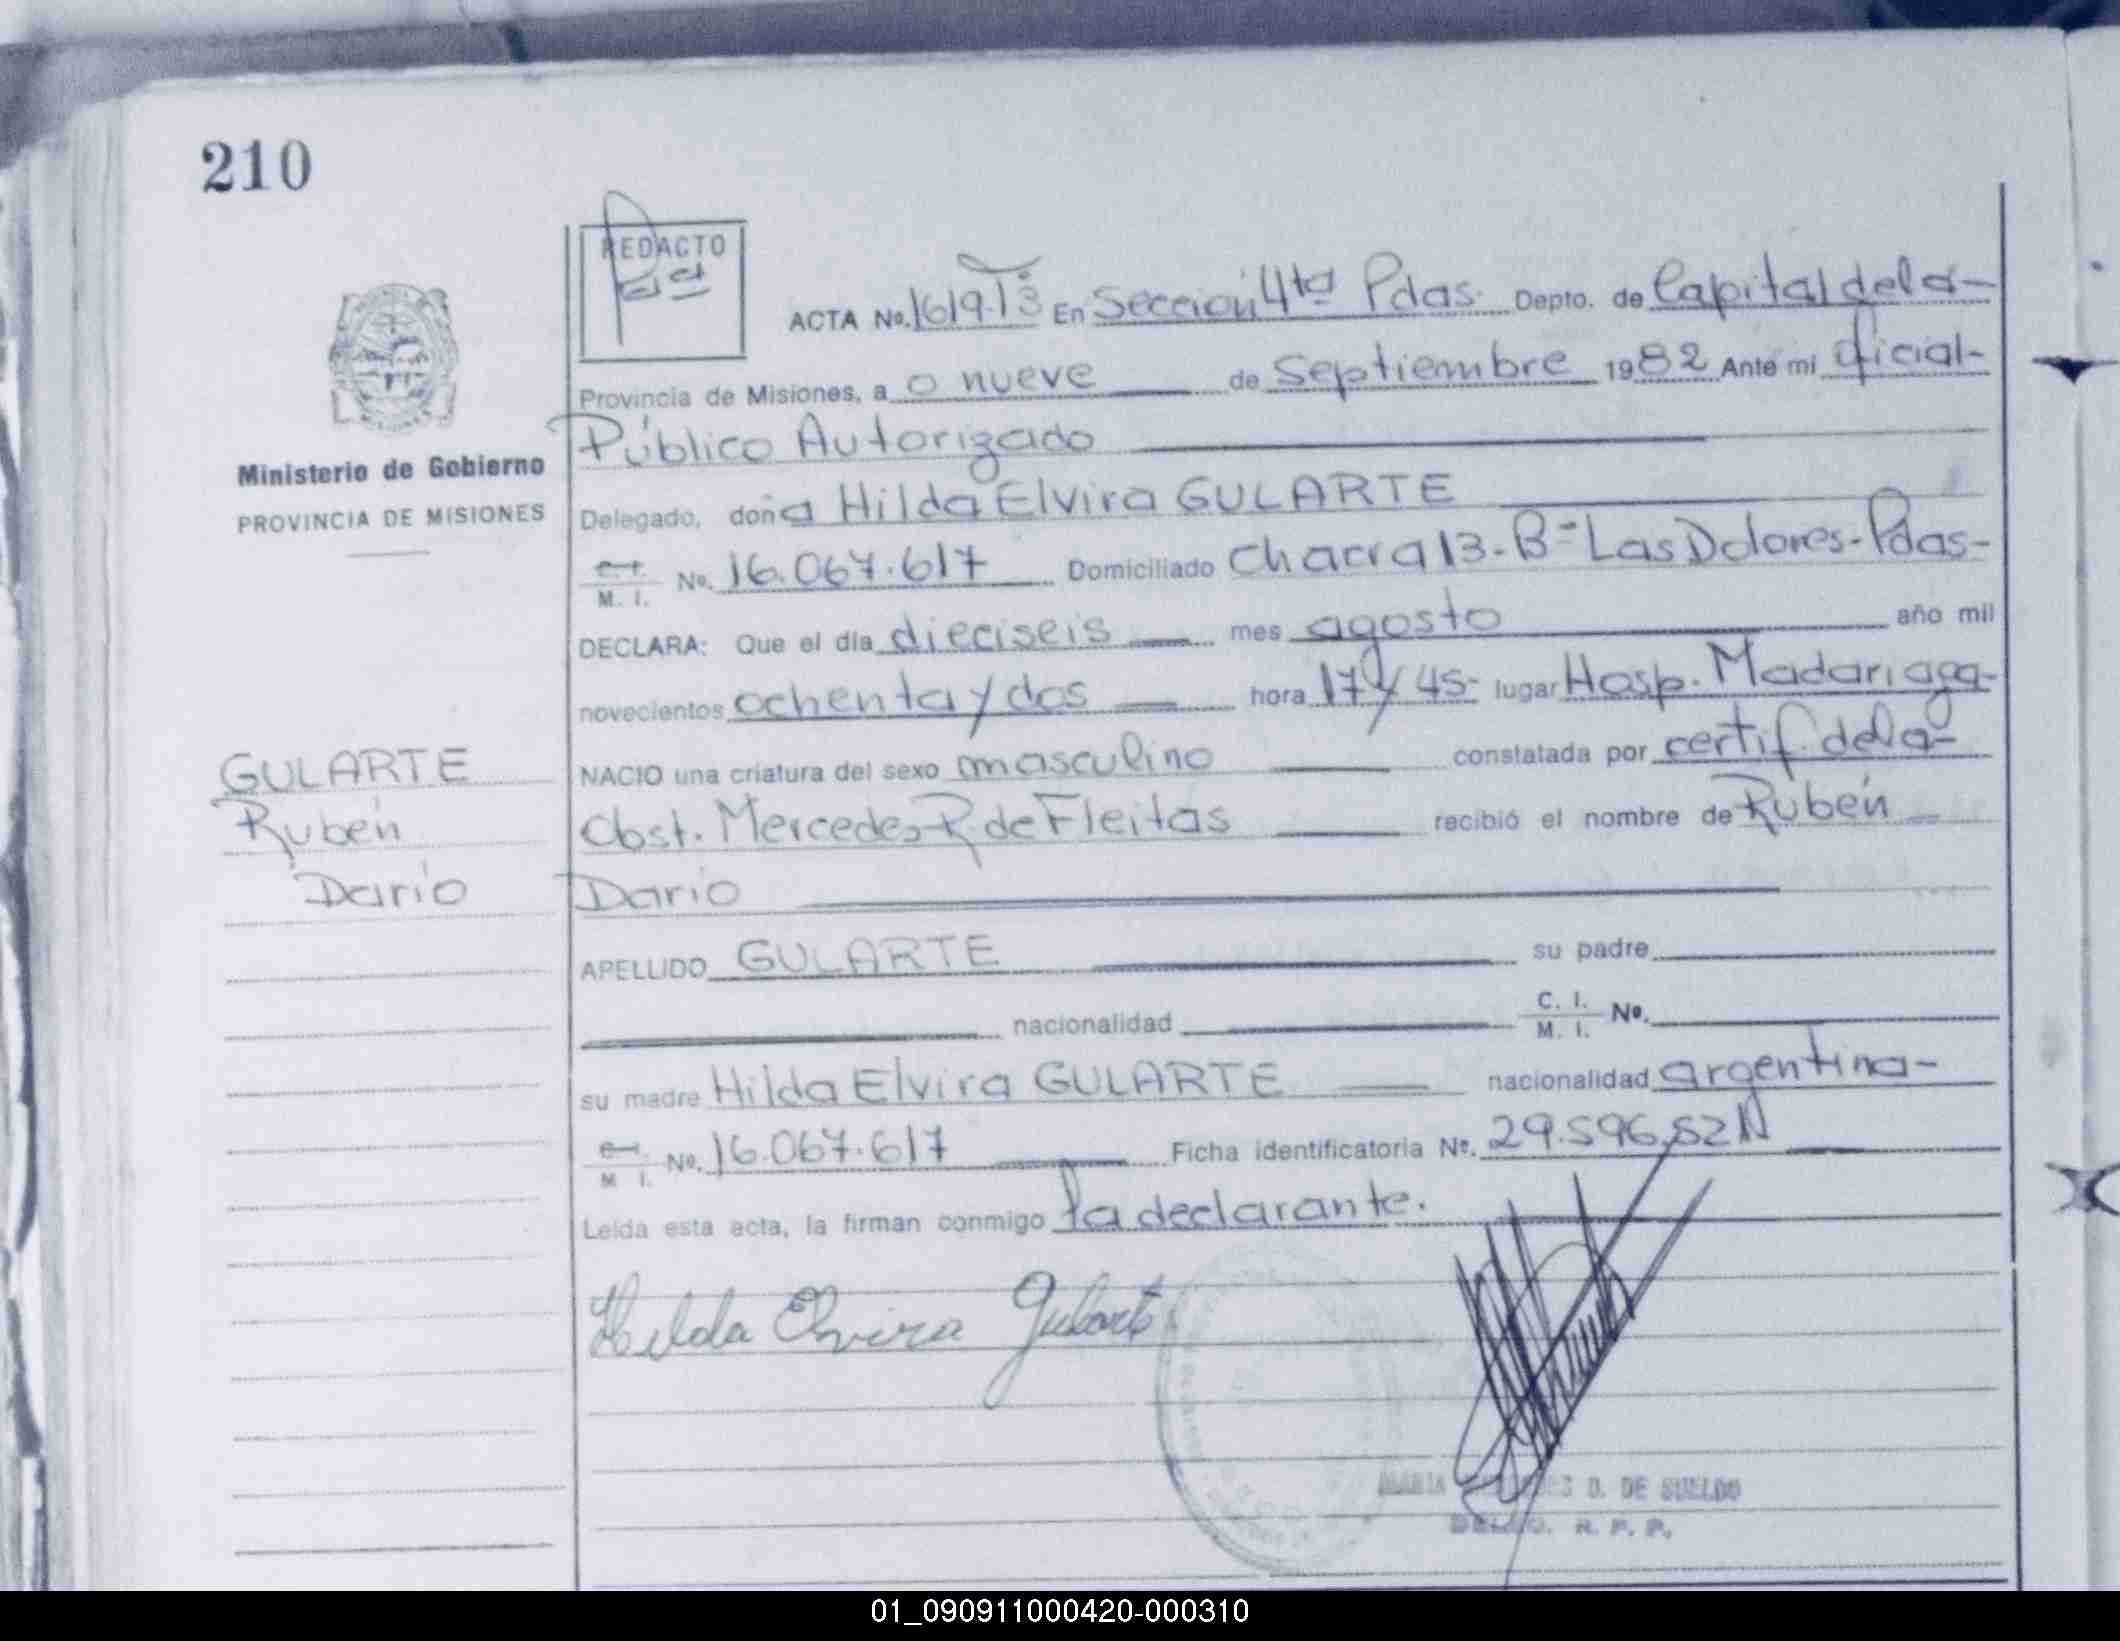 210
REDACTO
ACTA No. 1619.Tº3 En Sección 4ta Pdas. Depto. de Capital dela-
Provincia de Misiones, a o nueve de Septiembre 1982 Ante mi oficial-
Público Autorizado
Ministerio de Gobierno
PROVINCIA DE MISIONES
Delegado, doña Hilda Elvira GULARTE
M. I. No. 16.067.617 Domiciliado Chacra 13-Bº Las Dolores-Pdas-
DECLARA: Que el día dieciseis mes agosto año mil
novecientos ochenta y dos hora 17 y 45- lugar Hosp. Madariaga-
NACIO una criatura del sexo masculino constatada por certif. dela-
Obst. Mercedes R. de Fleitas recibió el nombre de Rubén
Darío
GULARTE
Rubén
Darío
APELLIDO GULARTE su padre
nacionalidad C. I. M. I. No.
su madre Hilda Elvira GULARTE nacionalidad argentina-
M. I. No. 16.067.617 Ficha identificatoria No. 29.596.82N
Leída esta acta, la firman conmigo la declarante.
Hilda Elvira Gularte
MARIA D. DE SUELDO
R. P. P.
01_090911000420-000310